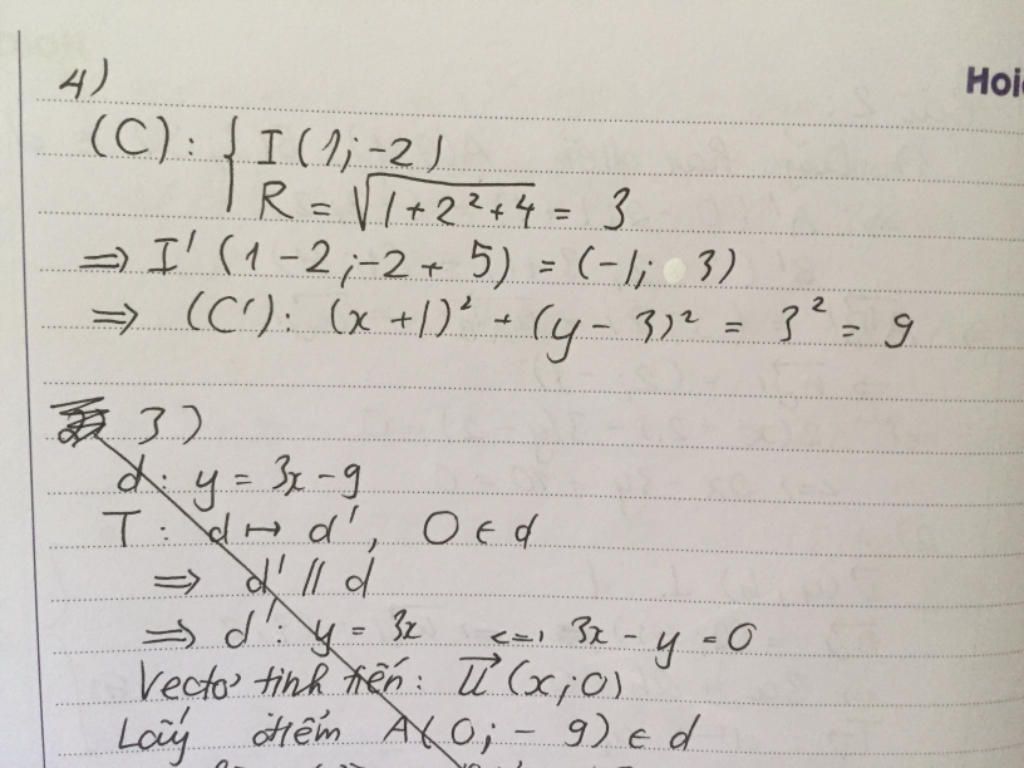 Hoi
4)
(C): { I (1; -2)
R = √(1 + 2² + 4) = 3
⇒ I' (1 - 2; -2 + 5) = (-1; 3)
⇒ (C'): (x + 1)² + (y - 3)² = 3² = 9
3)
d: y = 3x - 9
T: d ↦ d', O ∈ d
⇒ d' // d
⇒ d': y = 3x <=> 3x - y = 0
Vectơ tịnh tiến: u⃗ (x; 0)
Lấy điểm A(0; - 9) ∈ d